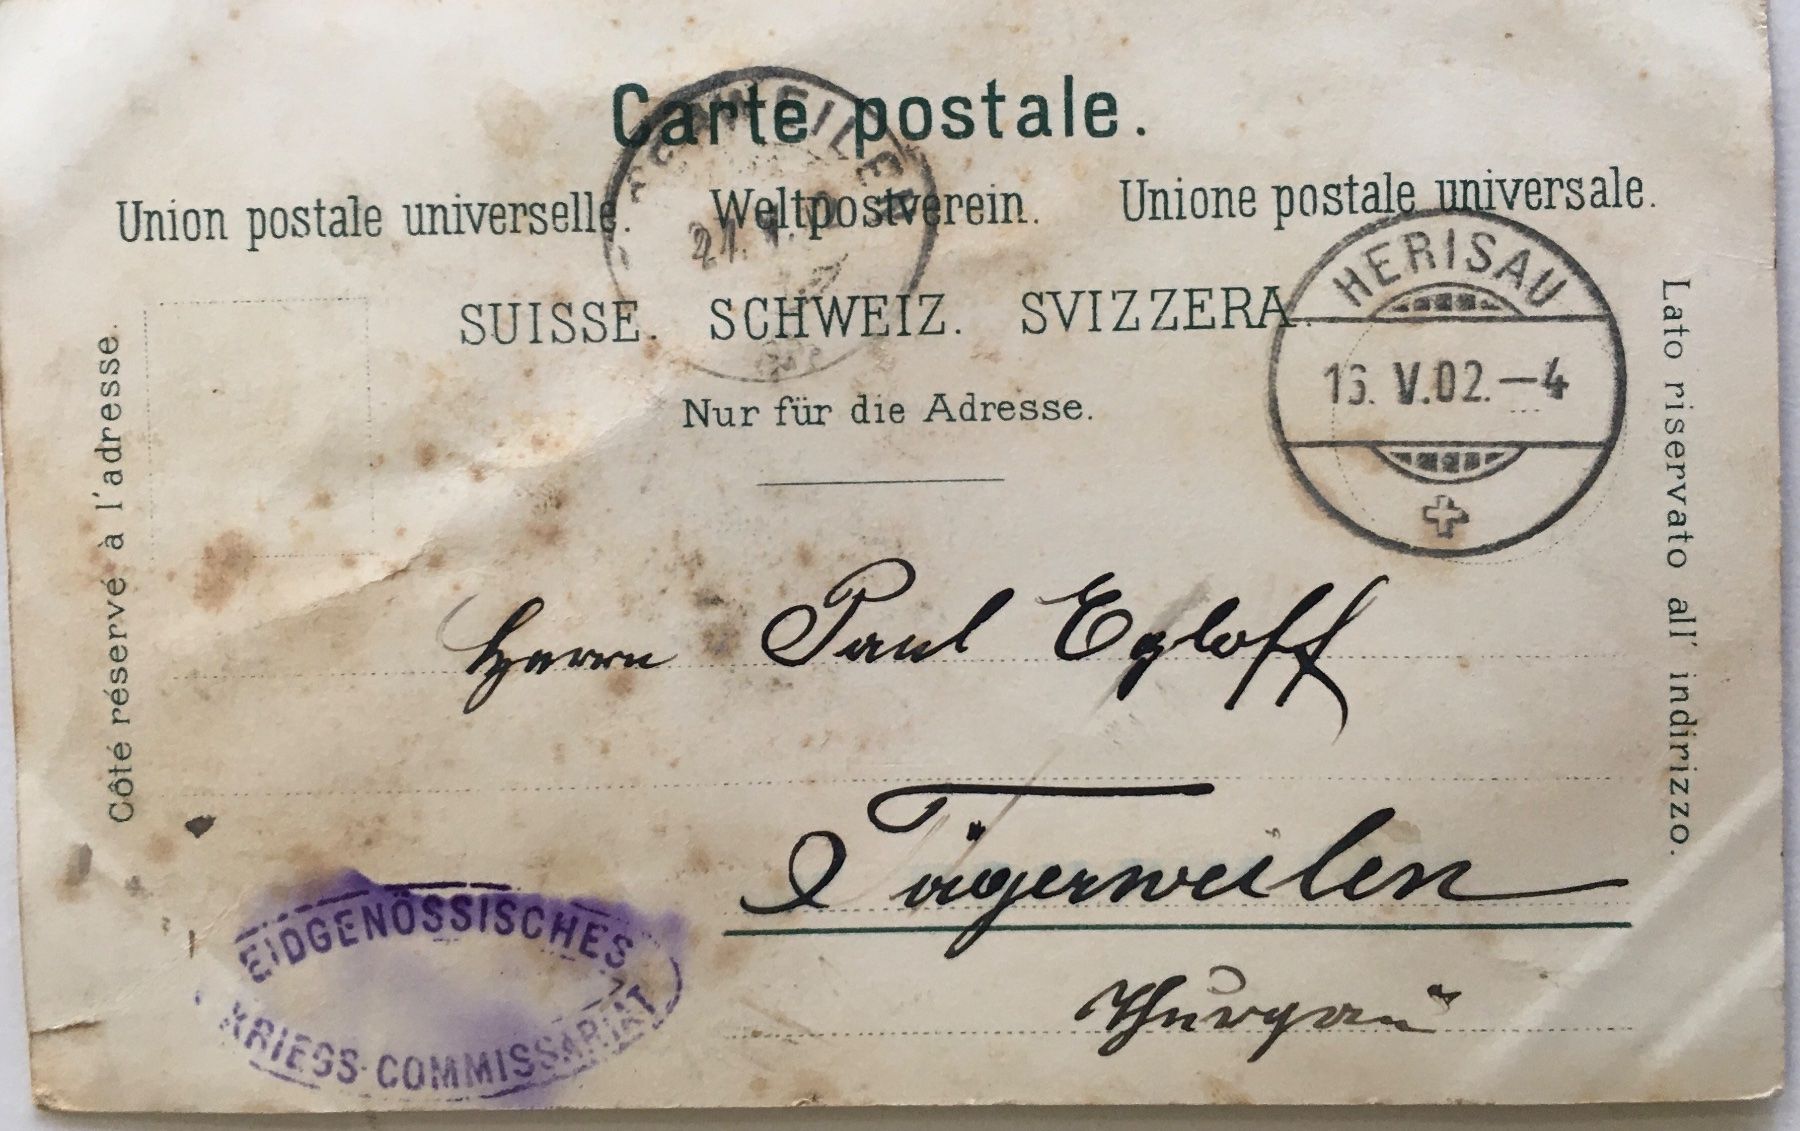 Carte postale.
Union postale universelle. Weltpostverein. Unione postale universale.
SUISSE. SCHWEIZ. SVIZZERA.
Nur für die Adresse.
Côté réservé à l'adresse.
Lato riservato all' indirizzo.
HERISAU
16. V. 02.—4
Herrn Paul Egloff
Tägerweilen
Thurgau
EIDGENÖSSISCHES
KRIEGS-COMMISSARIAT